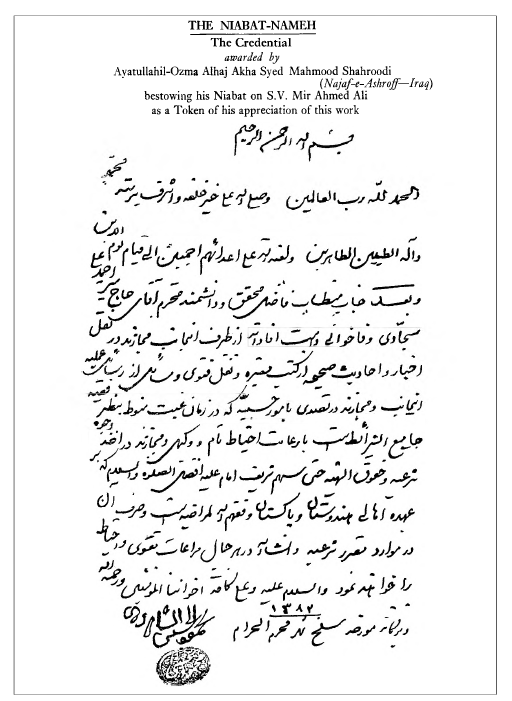 THE NIABAT-NAMEH
The Credential
awarded by
Ayatullahil-Ozma Alhaj Akha Syed Mahmood Shahroodi
(Najaf-e-Ashroff—Iraq)
bestowing his Niabat on S.V. Mir Ahmed Ali
as a Token of his appreciation of this work
بسم الله الرحمن الرحیم
الحمد لله رب العالمین وصلی الله علی خیر خلقه واشرف بریته محمد
وآله الطیبین الطاهرین ولعنة الله علی اعدائهم اجمعین الی قیام یوم الدین
وبعد جناب مستطاب فاضل محقق ودانشمند محترم آقای حاج میر احمد علی
دامت افاداته از طرف اینجانب مجازند در نقل
اخبار واحادیث صحیحه از کتب معتبره ونقل فتوی ومسائل از رساله عملیه
اینجانب ومجازند در تصدی بامور حسبیه که در زمان غیبت منوط بنظر فقیه
جامع الشرائط است با رعایت احتیاط تام و وکیل ومجازند در اخذ وجوه
شرعیه وحقوق الهیه حتی سهم امام علیه افضل الصلوة والسلام که بر
عهده اهالی هندوستان و پاکستان وفقهم الله لمراضیه است وصرف آن
در موارد مقرره شرعیه وانشاء الله در هر حال مراعات تقوی واحتیاط
را خواهند نمود والسلام علیه وعلی کافة اخواننا المؤمنین ورحمة الله
وبرکاته مورخه سلخ شهر محرم الحرام ۱۳۸۲
محمود الحسینی الشاهرودی